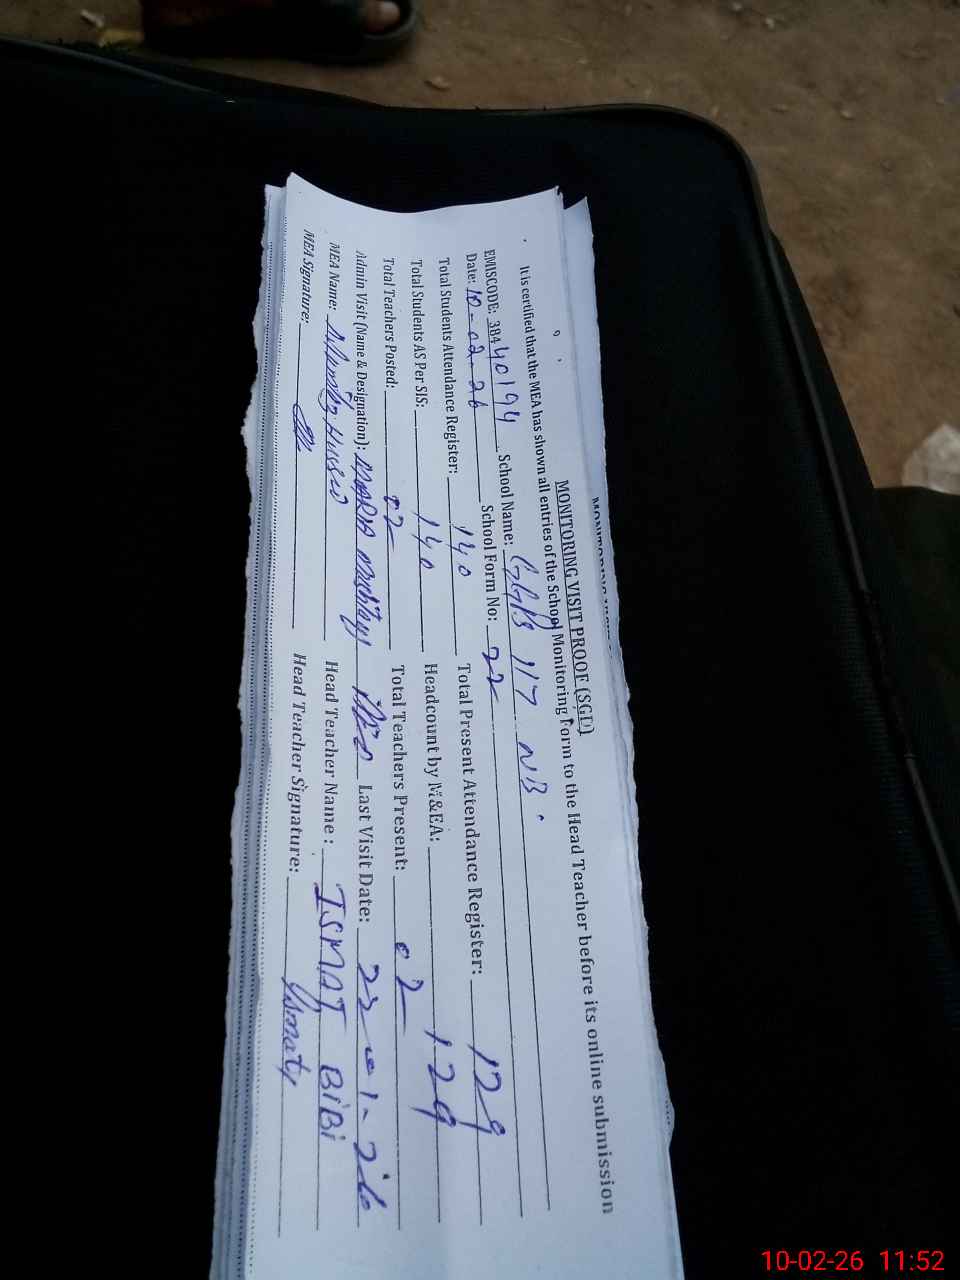 MONITORING VISIT PROOF (SGD)
It is certified that the MEA has shown all entries of the School Monitoring Form to the Head Teacher before its online submission
EMISCODE: 38440194 School Name: GGPS 117 NB.
Date: 10-02-26 School Form No: 22
Total Students Attendance Register: 140 Total Present Attendance Register: 129
Total Students AS Per SIS: 140 Headcount by M&EA: 129
Total Teachers Posted: 02 Total Teachers Present: 02
Admin Visit (Name & Designation): MARIA Mushtaq AEO Last Visit Date: 23-01-26
MEA Name: Head Teacher Name: ISMAT BiBi
MEA Signature: Head Teacher Signature: Ismaty
10-02-26 11:52